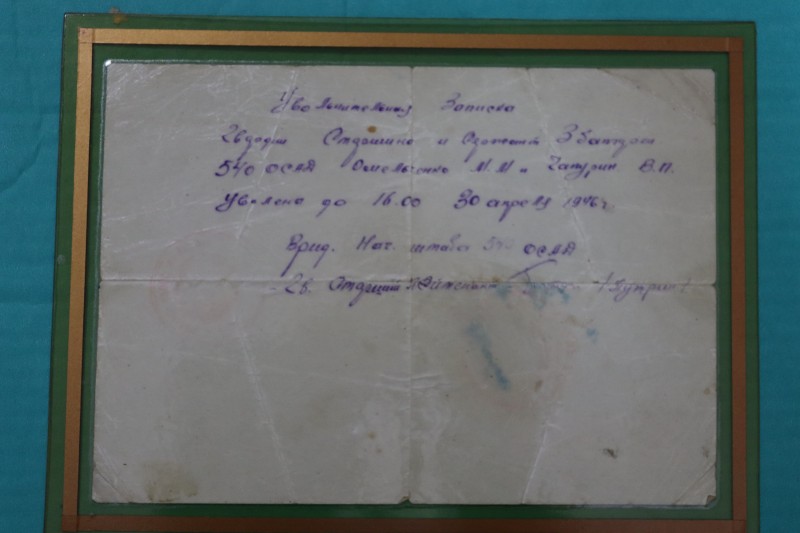 Увольнительная Записка
Гвардии Старшина и Сержант 3 батареи
540 ОСАД Омельченко М.М и Чапурин В.П.
Уволена до 16.00 30 апреля 1946 г
Врид. Нач. штаба 540 ОСАД
Гв. Старший Лейтенант